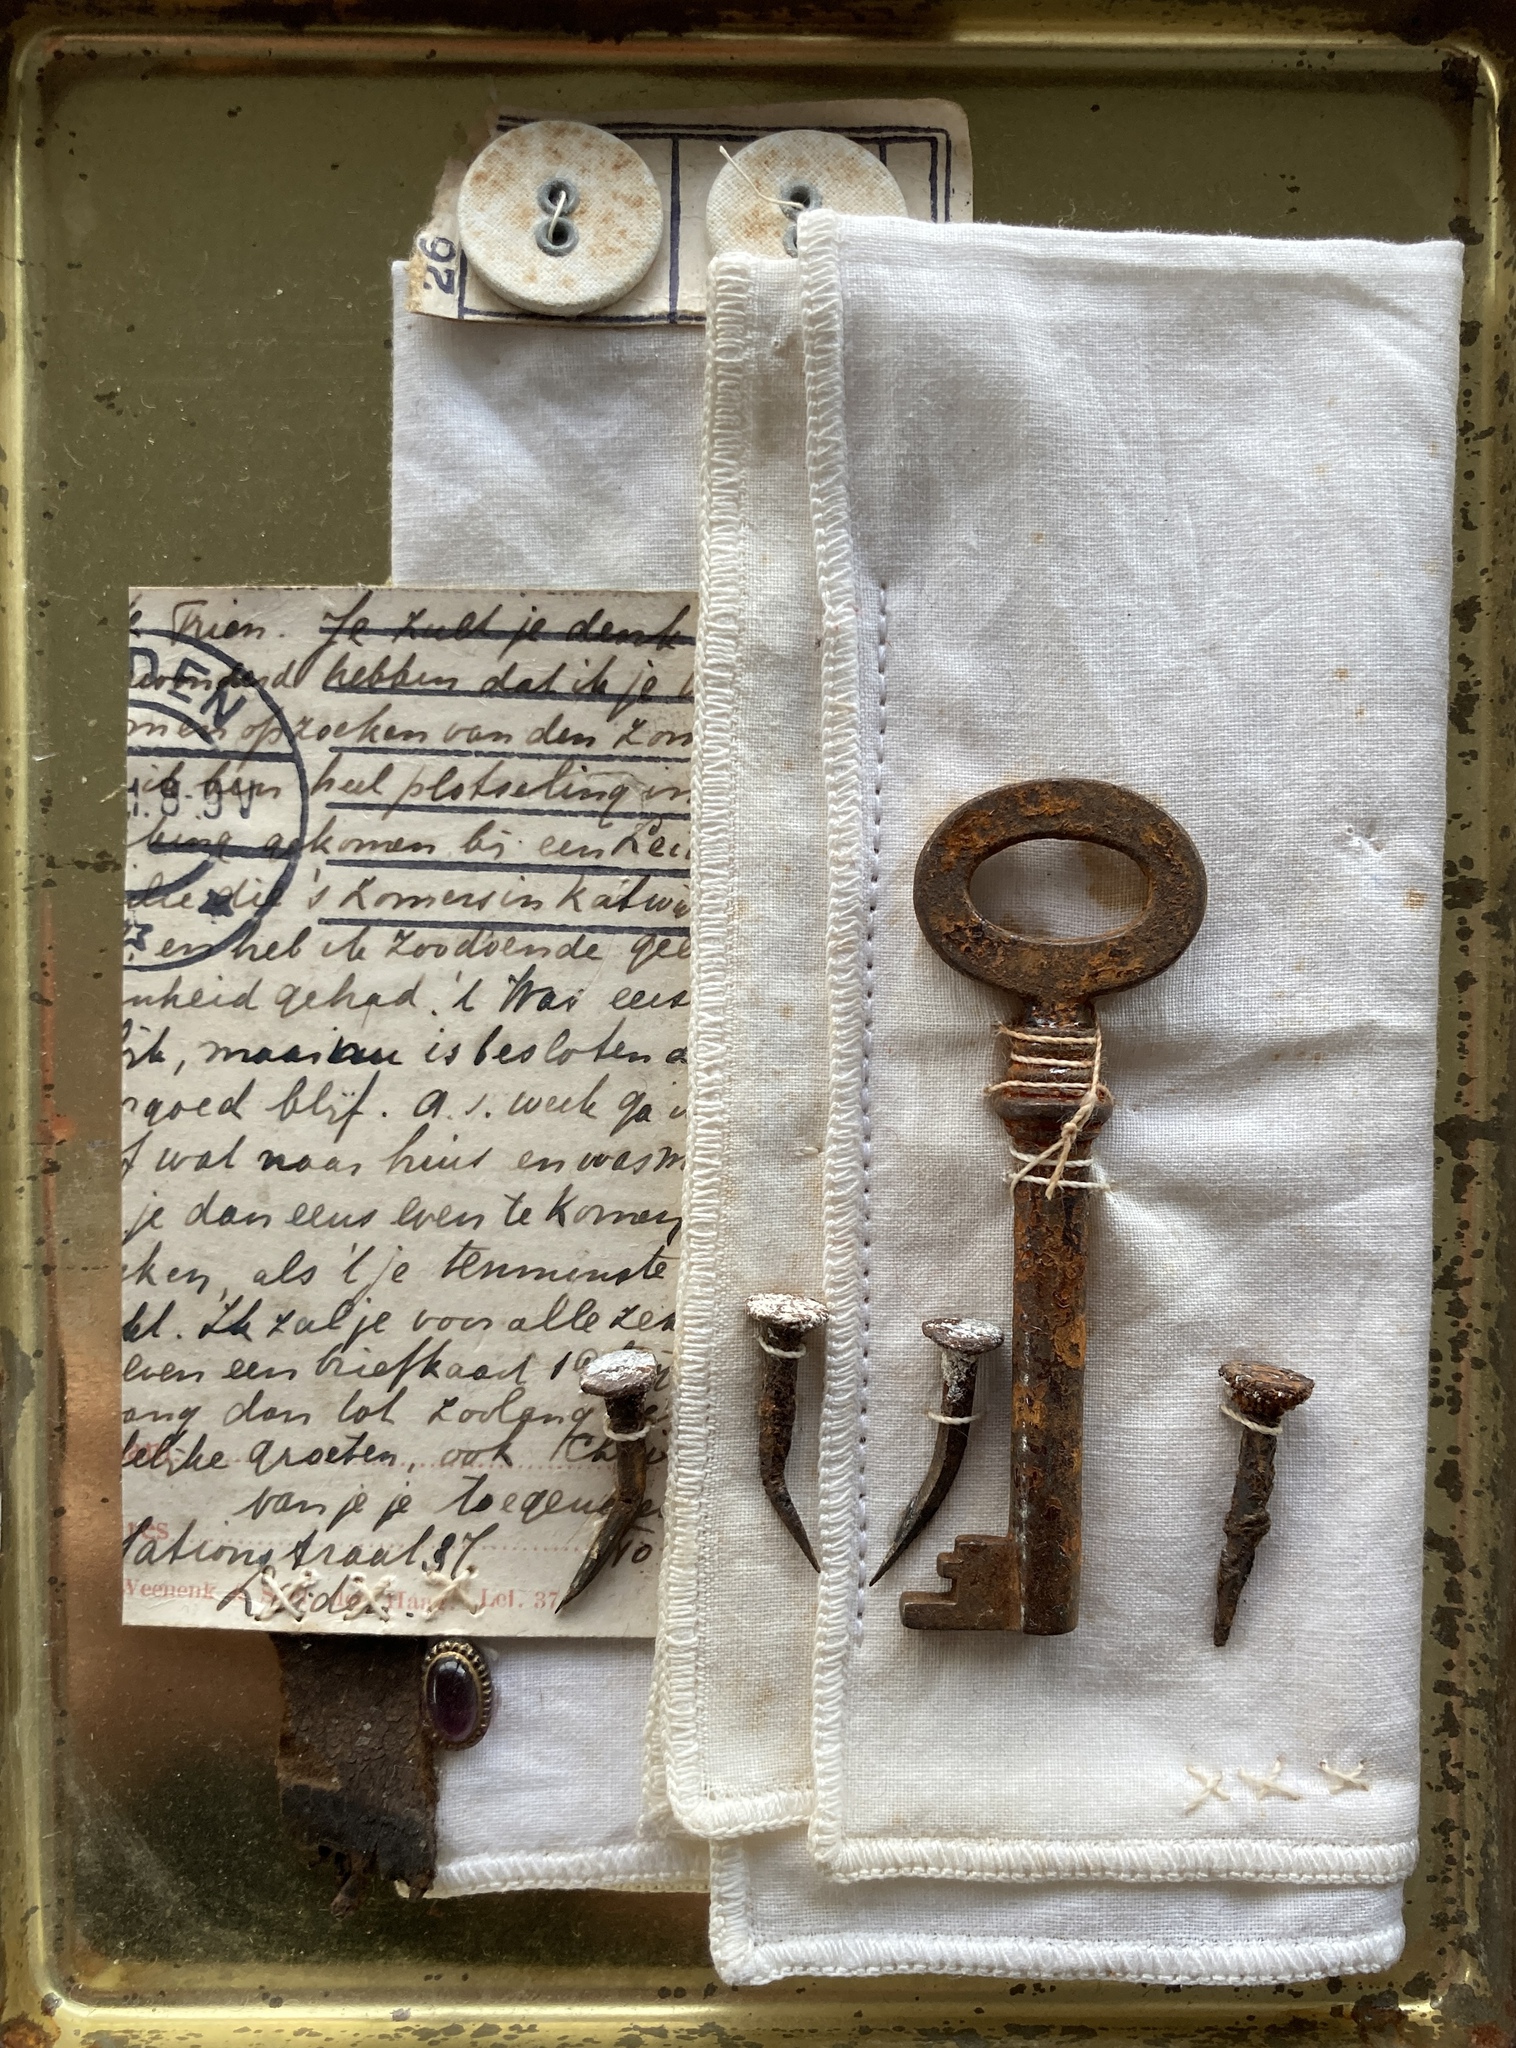 26
Trien. Je zult je denk
hebben dat ik je
opzoeken van den Zom
ik ben heel plotseling in
gekomen bij een Lei
die 's Zomers in Katwij
en heb ik zoodoende gele
nheid gehad. 't Was eerst
is besloten d
goed blijf. a.s. week ga i
wat naar huis en was
je dan eens even te komen
eken, als 't je tenminste
kt. Ik zal je voor alle zek
even een briefkaart
ang dan tot zoolang
elijke groeten, ook
van je je toegenegen
tationstraat 87
Leiden.
DEN
Veenenk
Lei. 37